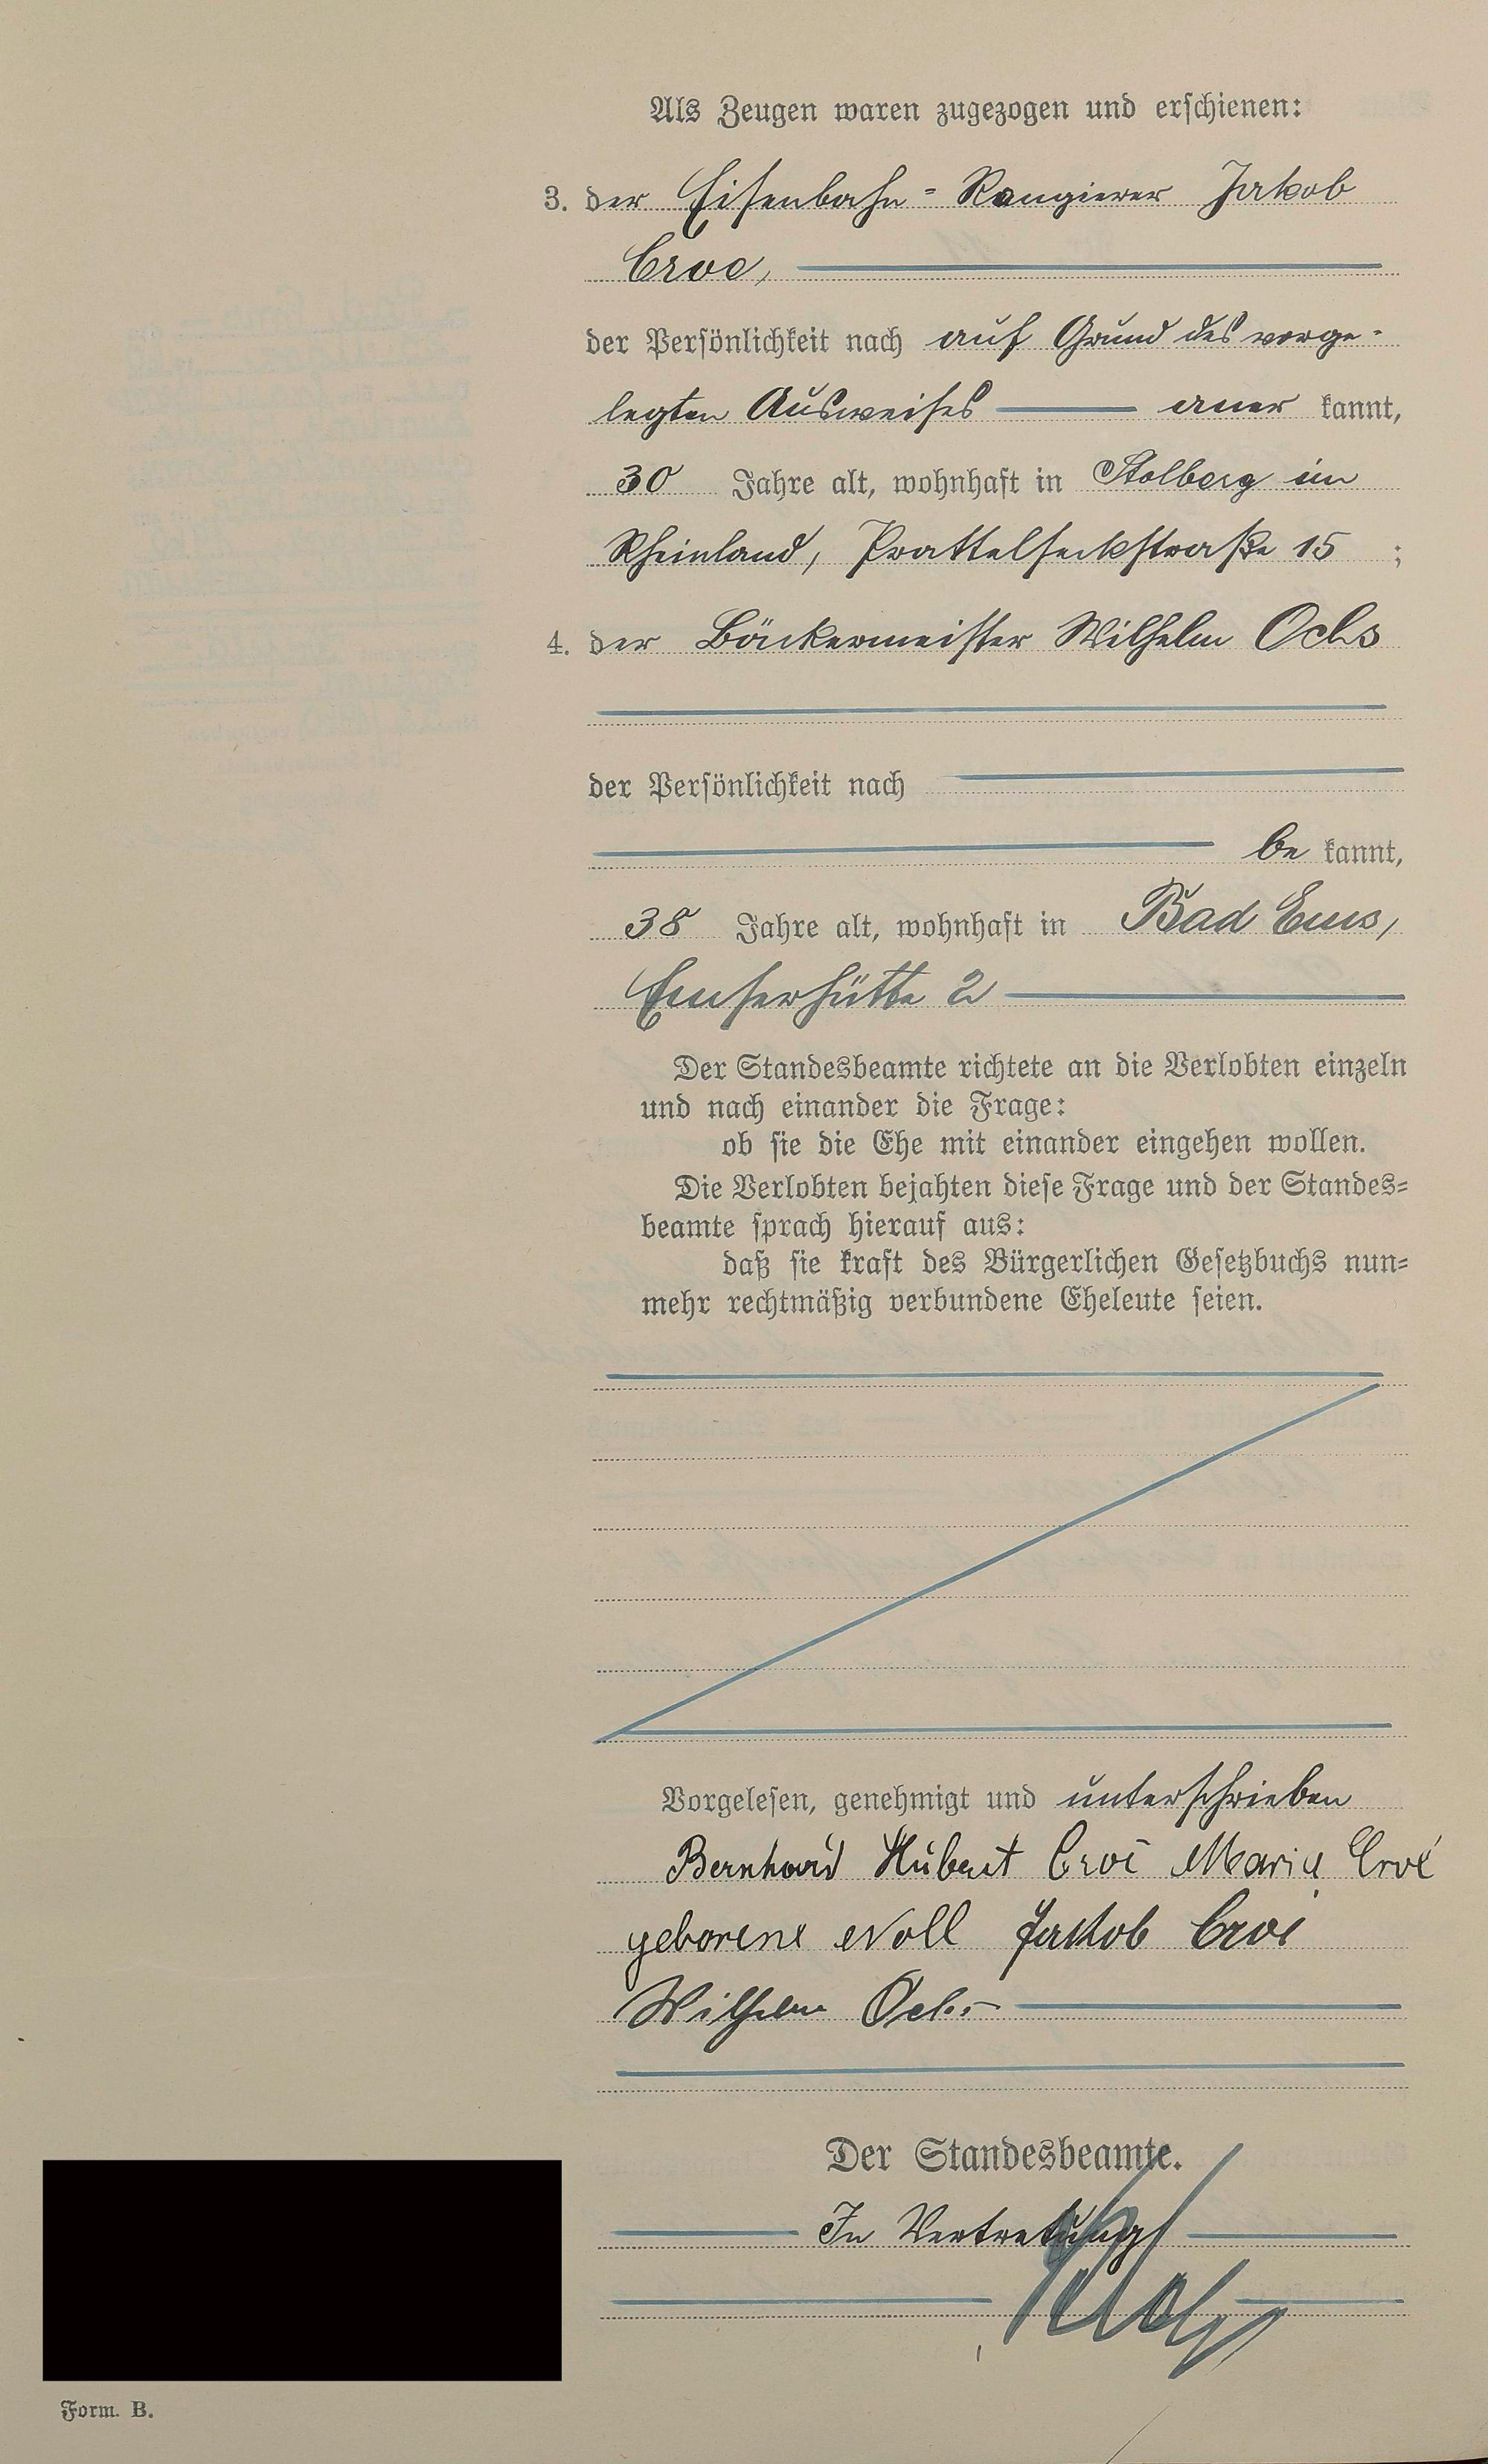 Als Zeugen waren zugezogen und erschienen:
3. der Eisenbahn-Rangierer Jakob
Croe,
der Persönlichkeit nach auf Grund des vorge-
legten Ausweises aner kannt,
30 Jahre alt, wohnhaft in Stolberg im
Rheinland, Prattelsackstraße 15 ;
4. der Bäckermeister Wilhelm Ochs
der Persönlichkeit nach
be kannt,
38 Jahre alt, wohnhaft in Bad Ems,
Emserhütte 2
Der Standesbeamte richtete an die Verlobten einzeln
und nach einander die Frage:
ob sie die Ehe mit einander eingehen wollen.
Die Verlobten bejahten diese Frage und der Standes-
beamte sprach hierauf aus:
daß sie kraft des Bürgerlichen Gesetzbuchs nun-
mehr rechtmäßig verbundene Eheleute seien.
Vorgelesen, genehmigt und unterschrieben
Bernhard Hubert Croé Maria Croé
geborene Noll Jakob Croé
Wilhelm Ochs
Der Standesbeamte.
In Vertretung
Form. B.